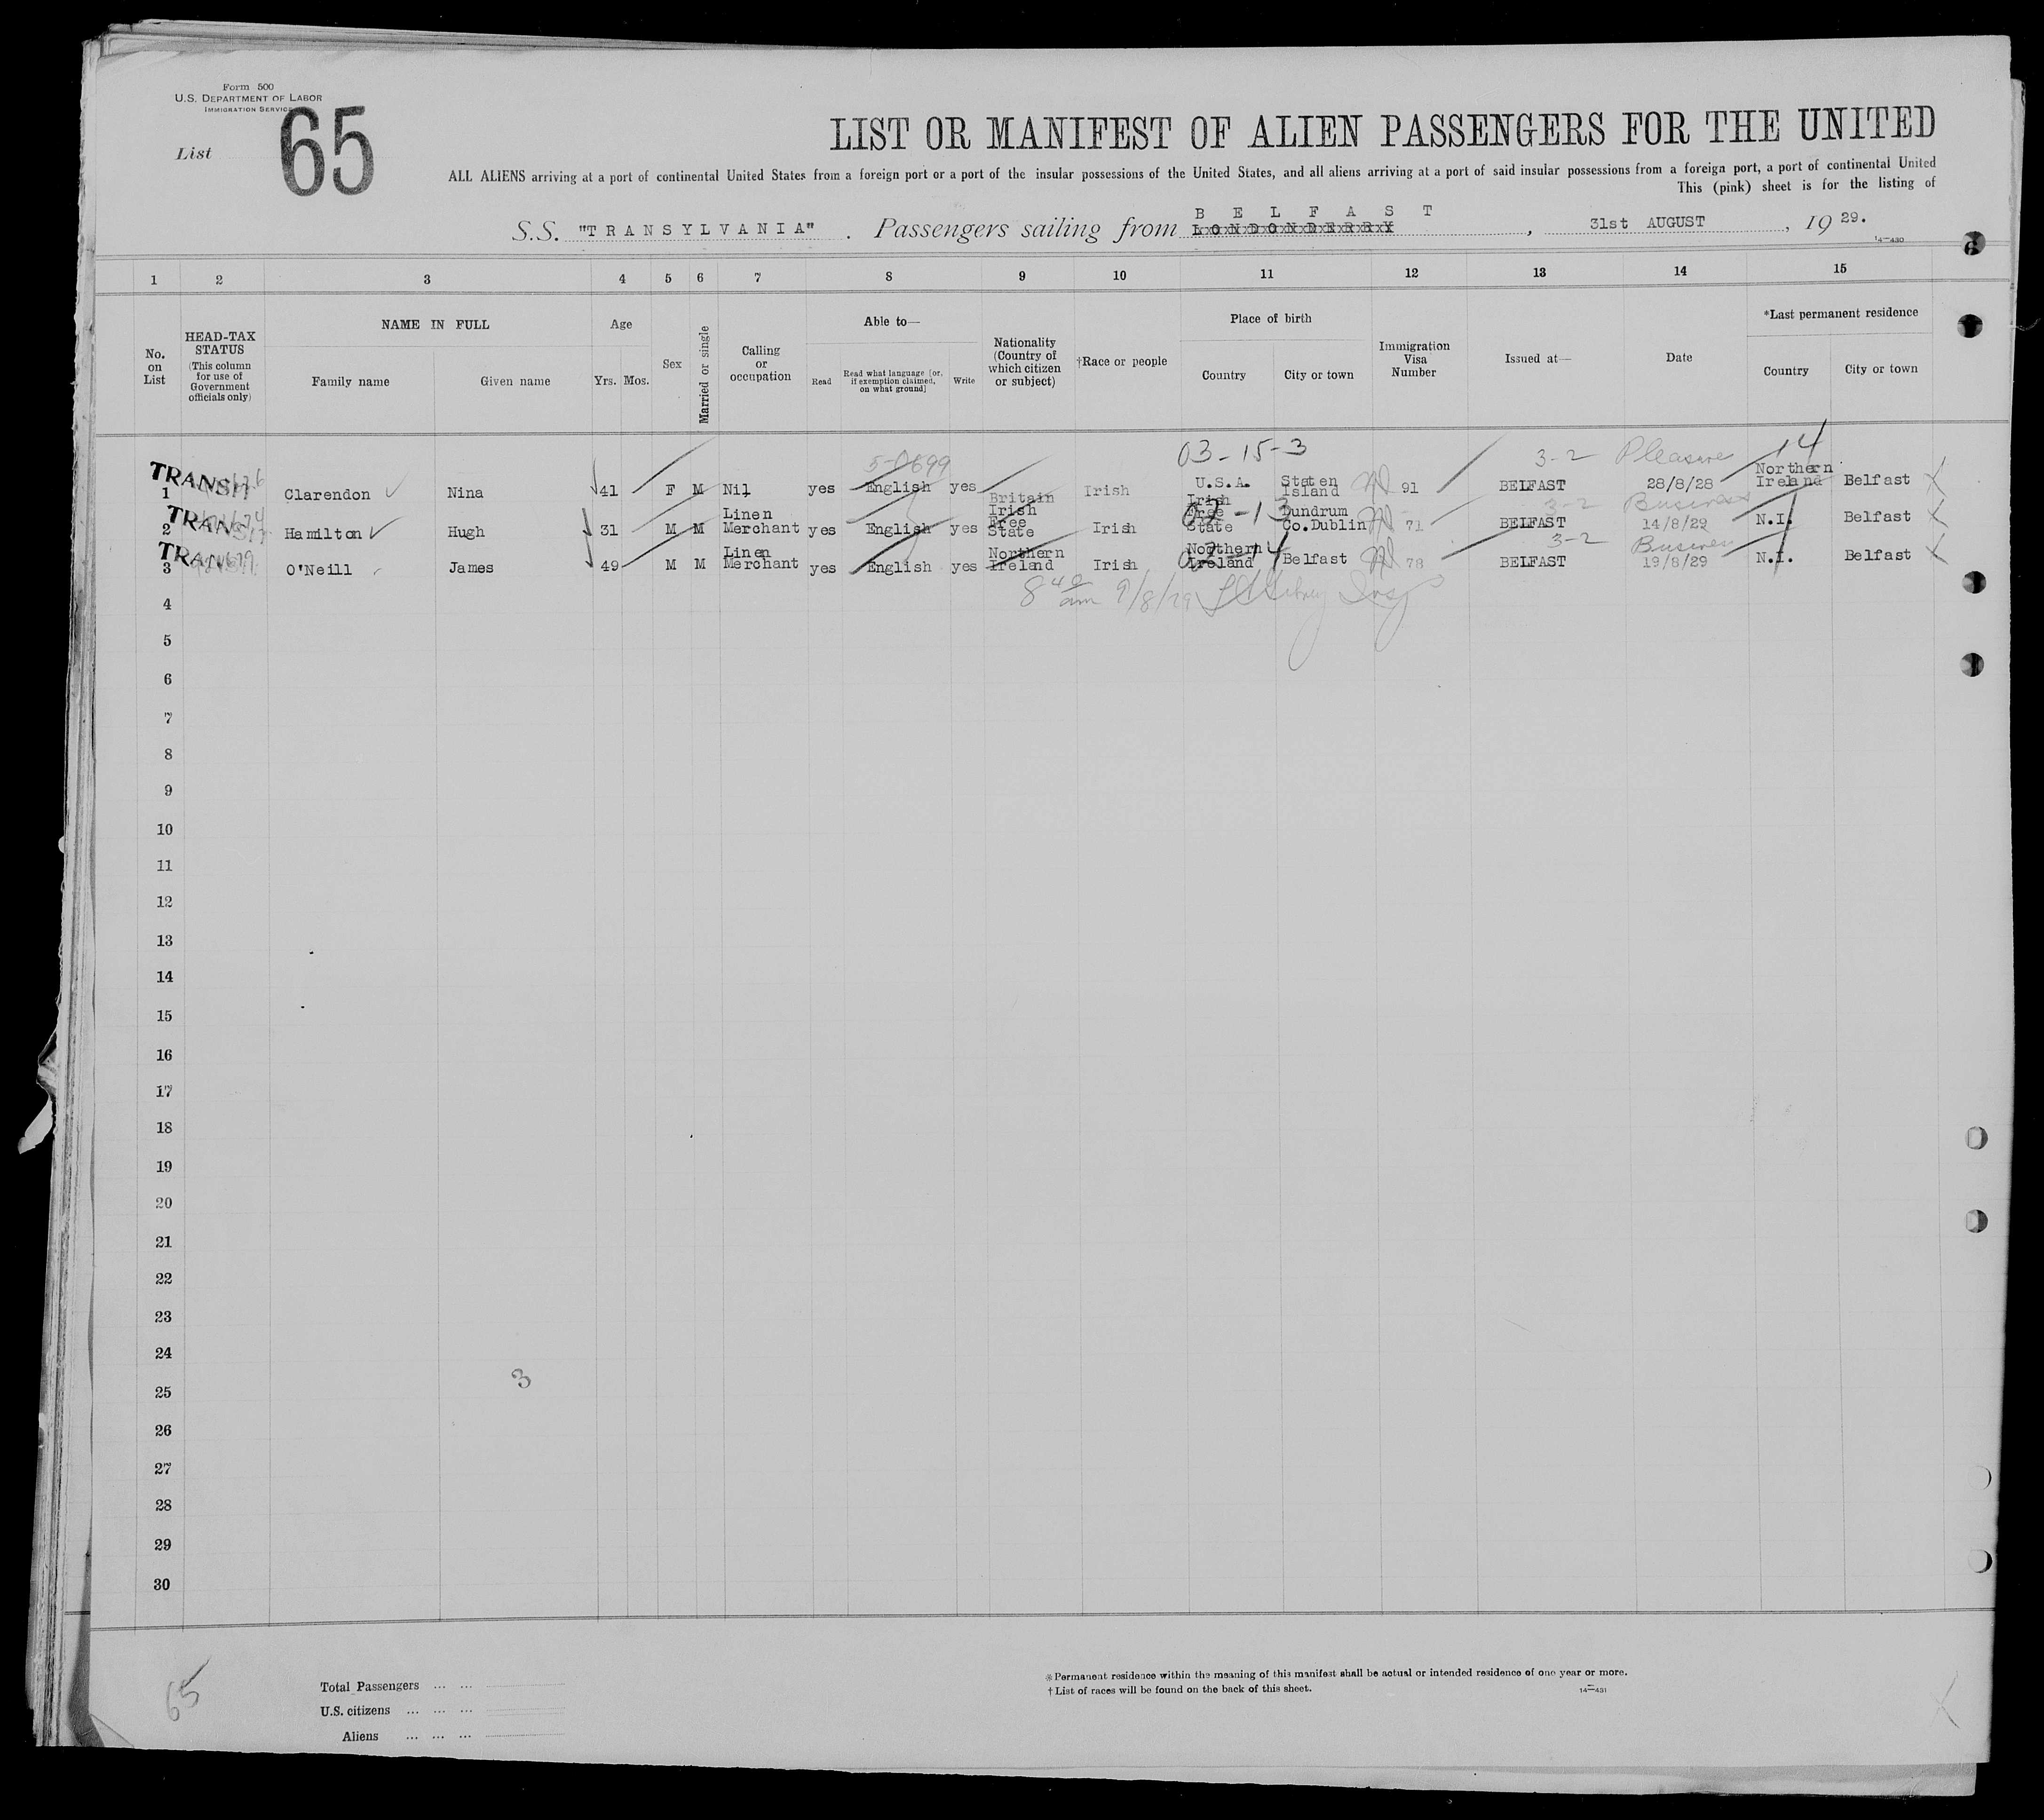 Form 500
U.S. DEPARTMENT OF LABOR
IMMIGRATION SERVICE
List 65
LIST OR MANIFEST OF ALIEN PASSENGERS FOR THE UNITED
ALL ALIENS arriving at a port of continental United States from a foreign port or a port of the insular possessions of the United States, and all aliens arriving at a port of said insular possessions from a foreign port, a port of continental United
This (pink) sheet is for the listing of
B E L F A S T
S.S. "TRANSYLVANIA" . Passengers sailing from LONDONDERRY , 31st AUGUST , 19 29.
14—430
6
1 2 3 4 5 6 7 8 9 10 11 12 13 14 15
No. on List
HEAD-TAX STATUS (This column for use of Government officials only)
NAME IN FULL
Family name Given name
Age
Yrs. Mos.
Sex
Married or single
Calling or occupation
Able to—
Read Read what language [or, if exemption claimed, on what ground] Write
Nationality (Country of which citizen or subject)
†Race or people
Place of birth
Country City or town
Immigration Visa Number
Issued at—
Date
*Last permanent residence
Country City or town
5-0699 03-15-3 3-2 Pleasure 14
TRANSIT
1 Clarendon Nina 41 F M Nil yes English yes Britain Irish U.S.A. Staten Island 91 BELFAST 28/8/28 Northern Ireland Belfast
02-13 3-2 Business
TRANSIT
2 Hamilton Hugh 31 M M Linen Merchant yes English yes Irish Free State Irish Irish Free State Dundrum Co.Dublin 71 BELFAST 14/8/29 N.I. Belfast
02-14 3-2 Business
TRANSIT
3 O'Neill James 49 M M Linen Merchant yes English yes Northern Ireland Irish Northern Ireland Belfast 78 BELFAST 19/8/29 N.I. Belfast
8 40 am 9/8/29 Insp
4
5
6
7
8
9
10
11
12
13
14
15
16
17
18
19
20
21
22
23
24
3
25
26
27
28
29
30
65
Total Passengers ... ...
U.S. citizens ... ... ...
Aliens ... ... ...
*Permanent residence within the meaning of this manifest shall be actual or intended residence of one year or more.
†List of races will be found on the back of this sheet.
14—431